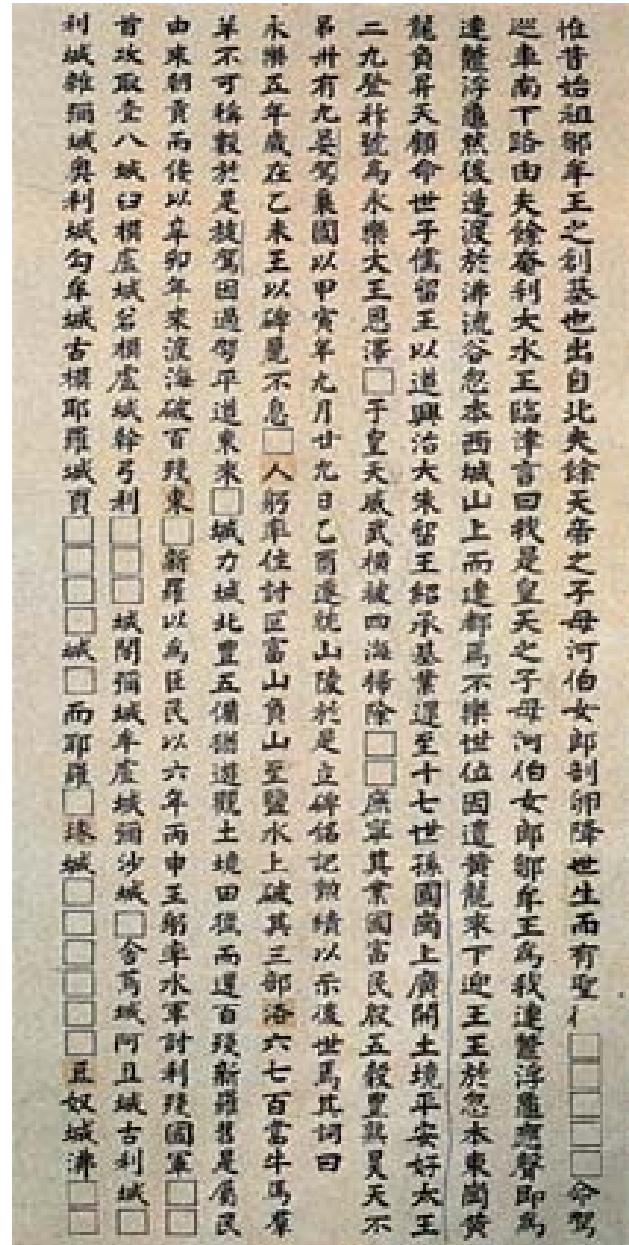 惟昔始祖鄒牟王之創基也出自北夫餘天帝之子母河伯女郎剖卵降世生而有聖亻□□□□□命駕
巡車南下路由夫餘奄利大水王臨津言曰我是皇天之子母河伯女郎鄒牟王爲我連鼈浮龜應聲即爲
連鼈浮龜然後造渡於沸流谷忽本西城山上而建都焉不樂世位因遣黃龍來下迎王王於忽本東崗黃
龍負昇天顧命世子儒留王以道興治大朱留王紹承基業遝至十七世孫國崗上廣開土境平安好太王
二九登祚號爲永樂大王恩澤□于皇天威武橫被四海掃除□□庶寧其業國富民殷五穀豊熟昊天不
弔卅有九晏駕棄國以甲寅年九月廿九日乙酉遷就山陵於是立碑銘記勳績以示後世焉其詞曰
永樂五年歲在乙未王以碑麗不息□人躬率住討叵富山負山至鹽水上破其三部洛六七百當牛馬羣
羊不可稱數於是旋駕因過駕平道東來□城力城北豊五備猶遊觀土境田獵而還百殘新羅舊是屬民
由來朝貢而倭以辛卯年來渡海破百殘東□新羅以爲臣民以六年丙申王躬率水軍討利殘國軍□□
首攻取壹八城臼模盧城若模盧城幹弓利□□□城閣彌城牟盧城彌沙城□舍蔦城阿旦城古利城□
利城雜彌城奧利城勾牟城古模耶羅城頁□□□□城□而耶羅□瑑城□□□□□□且奴城沸□□